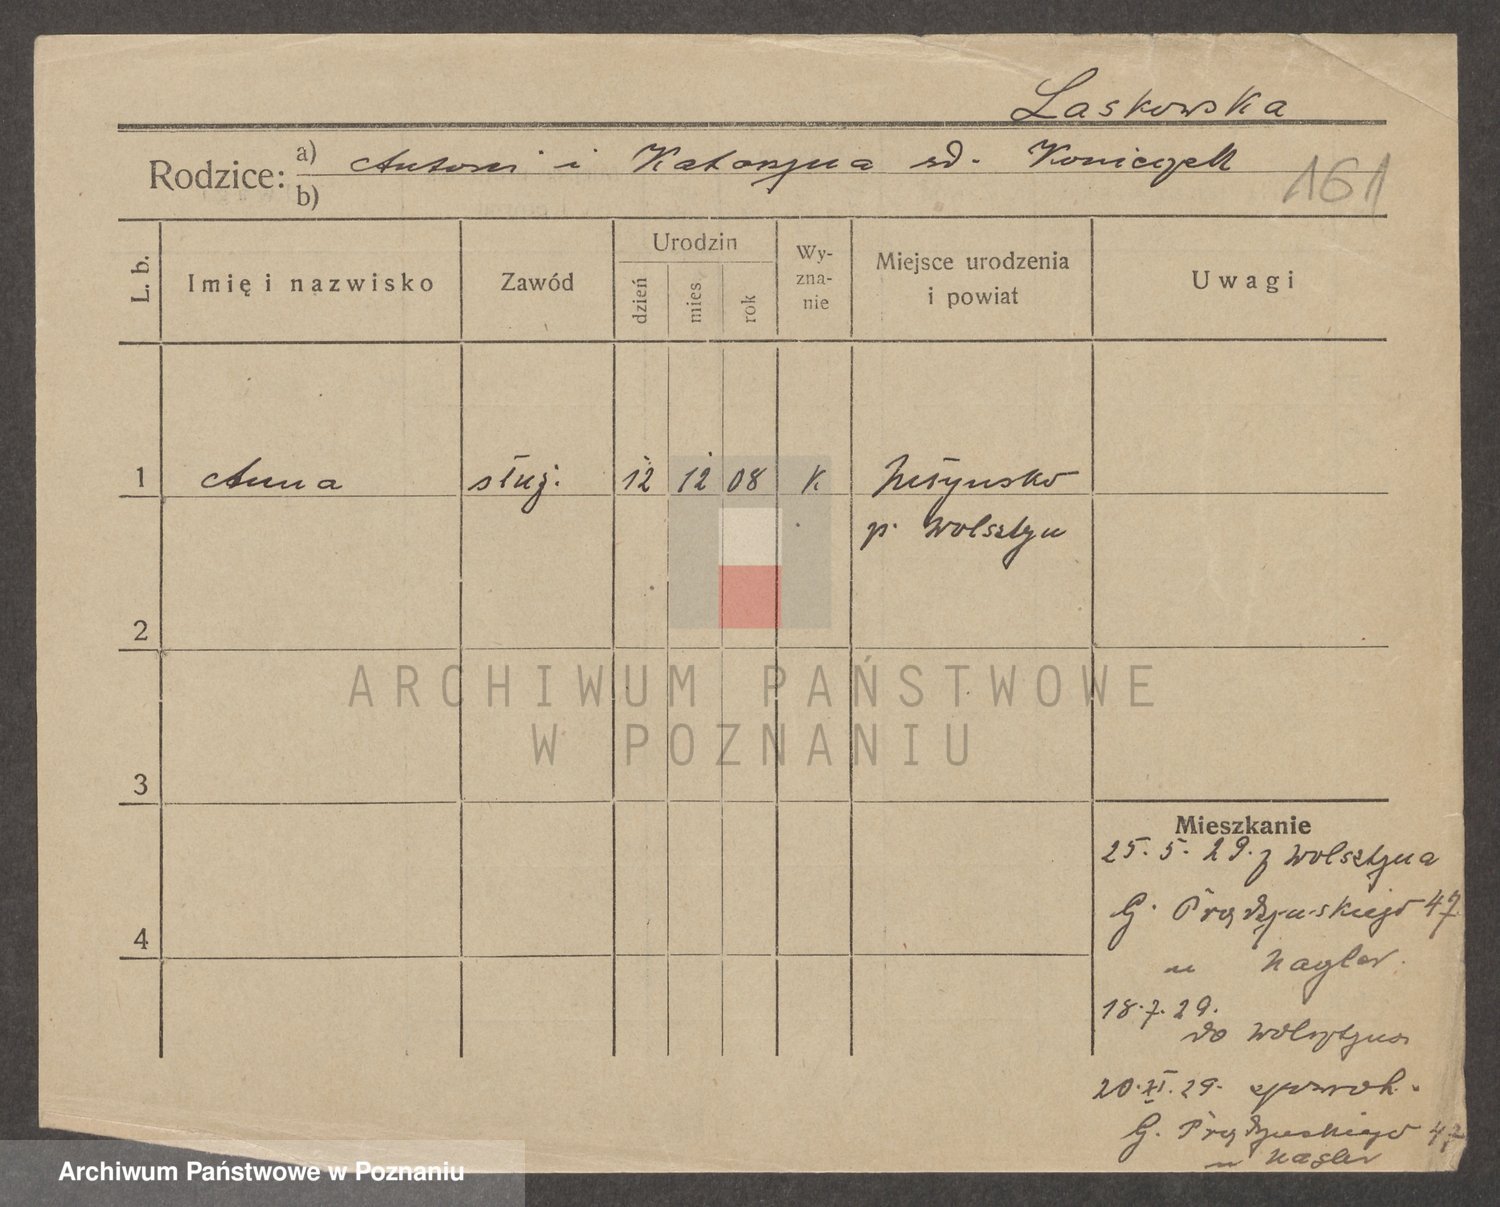 Laskowska
Rodzice: a) Antoni i Katarzyna zd.
b)
161
L. b.
Imię i nazwisko
Zawód
Urodzin
dzień
mies
rok
Wy-
zna-
nie
Miejsce urodzenia
i powiat
Uwagi
1 Anna służ. 12 12 08 K
p. Wolsztyn
2
3
4
ARCHIWUM PAŃSTWOWE
W POZNANIU
Mieszkanie
25. 5. 29. z Wolsztyna
G. Prądzyńskiego 47
u Nagler.
18. 7. 29.
do Wolsztyna
20. XI. 29.
G. Prądzyńskiego 47
u Nagler
Archiwum Państwowe w Poznaniu